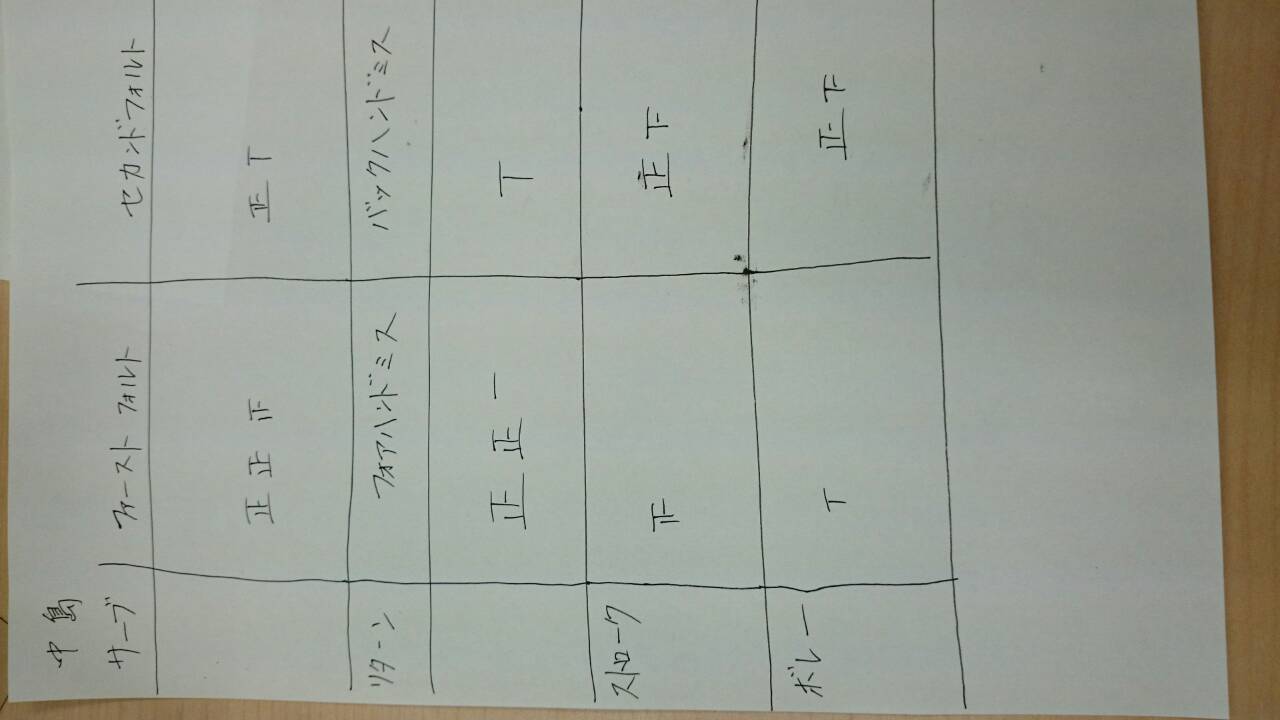 中島
サーブ ファーストフォルト セカンドフォルト
正正𤴓 正丅
リターン フォアハンドミス バックハンドミス
正正一 丅
ストローク 𤴓 正下
ボレー 丅 正下